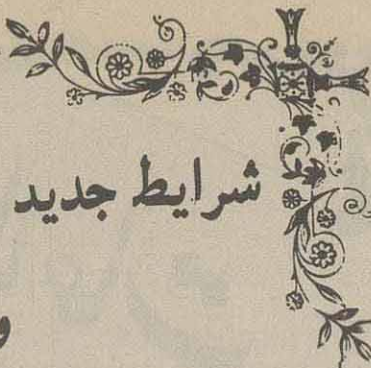 شرایط جدید
و